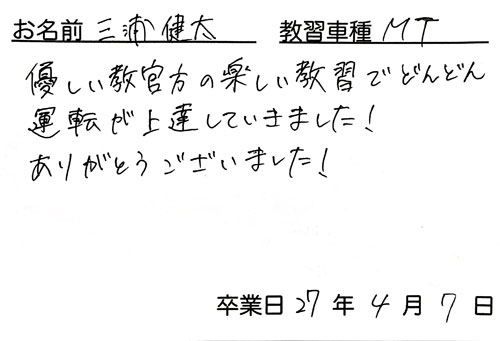 お名前 三浦健太 教習車種 MT
優しい教官方の楽しい教習でどんどん
運転が上達していきました!
ありがとうございました!
卒業日 27 年 4 月 7 日